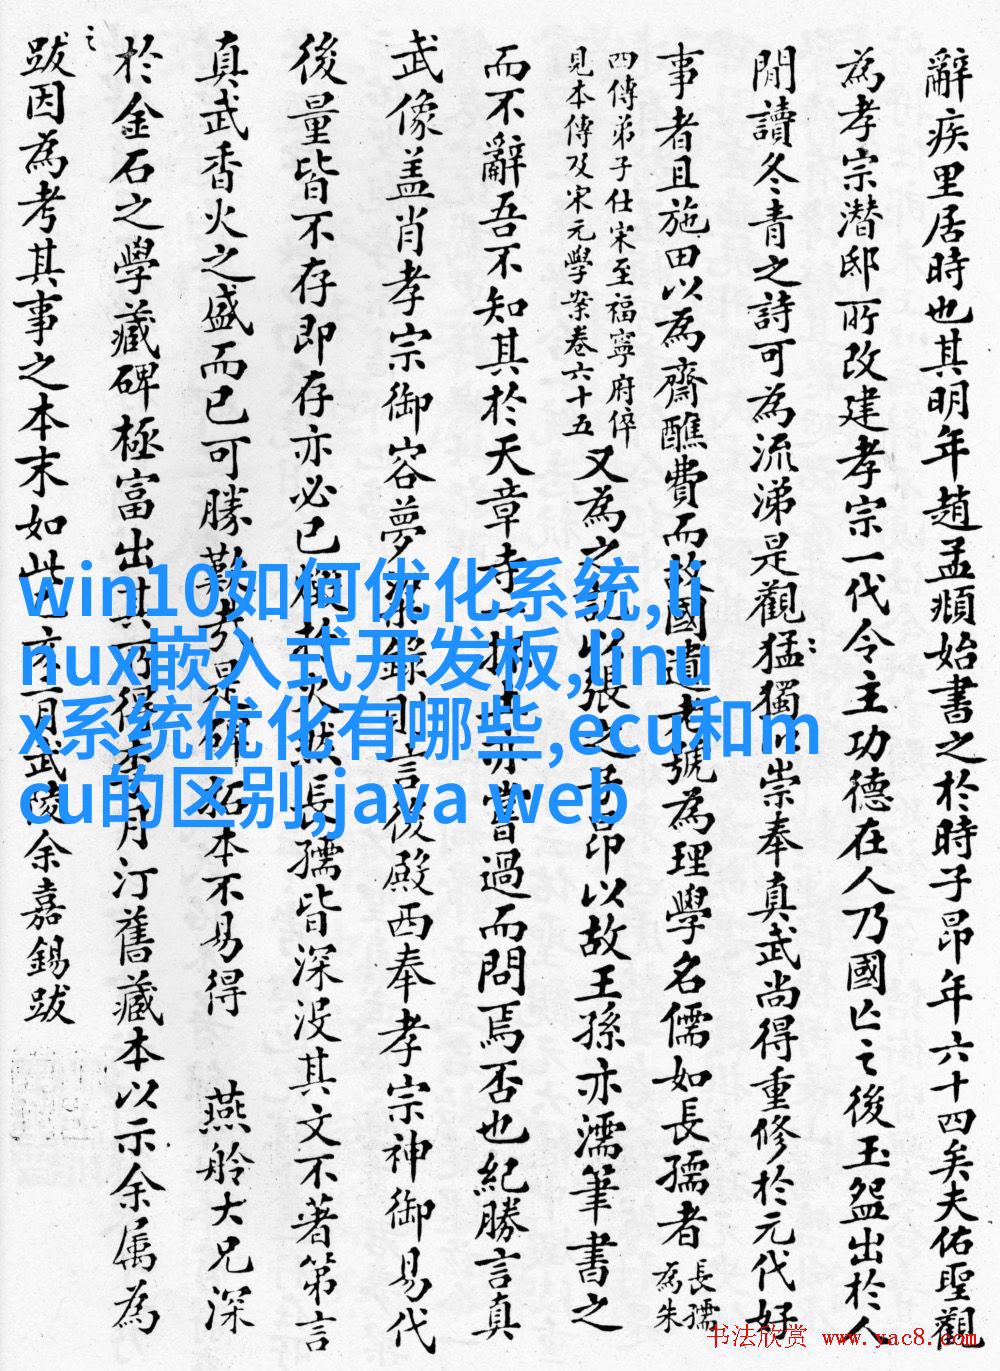 辭疾里居時也其明年趙孟頫始書之於時子昂年六十四矣夫佑聖觀
為孝宗潛邸所改建孝宗一代令主功德在人乃國亡之後玉盌出於人
間讀冬青之詩可為流涕是觀猛獨以崇奉真武尚得重修於元代好
事者且施田以為齋醮費而故國遺老號為理學名儒如長孺者
長孺
為朱
四傳弟子仕宋至福寧府倅
見本傳及宋元學案卷六十五
又為之說以張之子昂以故王孫亦濡筆書之
而不辭吾不知其於天章寺一抔土亦嘗過而問焉否也紀勝言真
武像盖肖孝宗御容夢粱錄則言後殿西奉孝宗神御易代
後量皆不存即存亦必已
長孺皆深沒其文不著第言
真武香火之盛而已可勝歎哉是碑拓本不易得 燕舲大兄深
於金石之學藏碑極富出其乃得
月汀舊藏本以示余属為
之
跋因為考其事之本末如此
武陵余嘉錫跋
win10如何优化系统,li
nux嵌入式开发板,linu
x系统优化有哪些,ecu和m
cu的区别,java web
书法欣赏 www.yac8.com